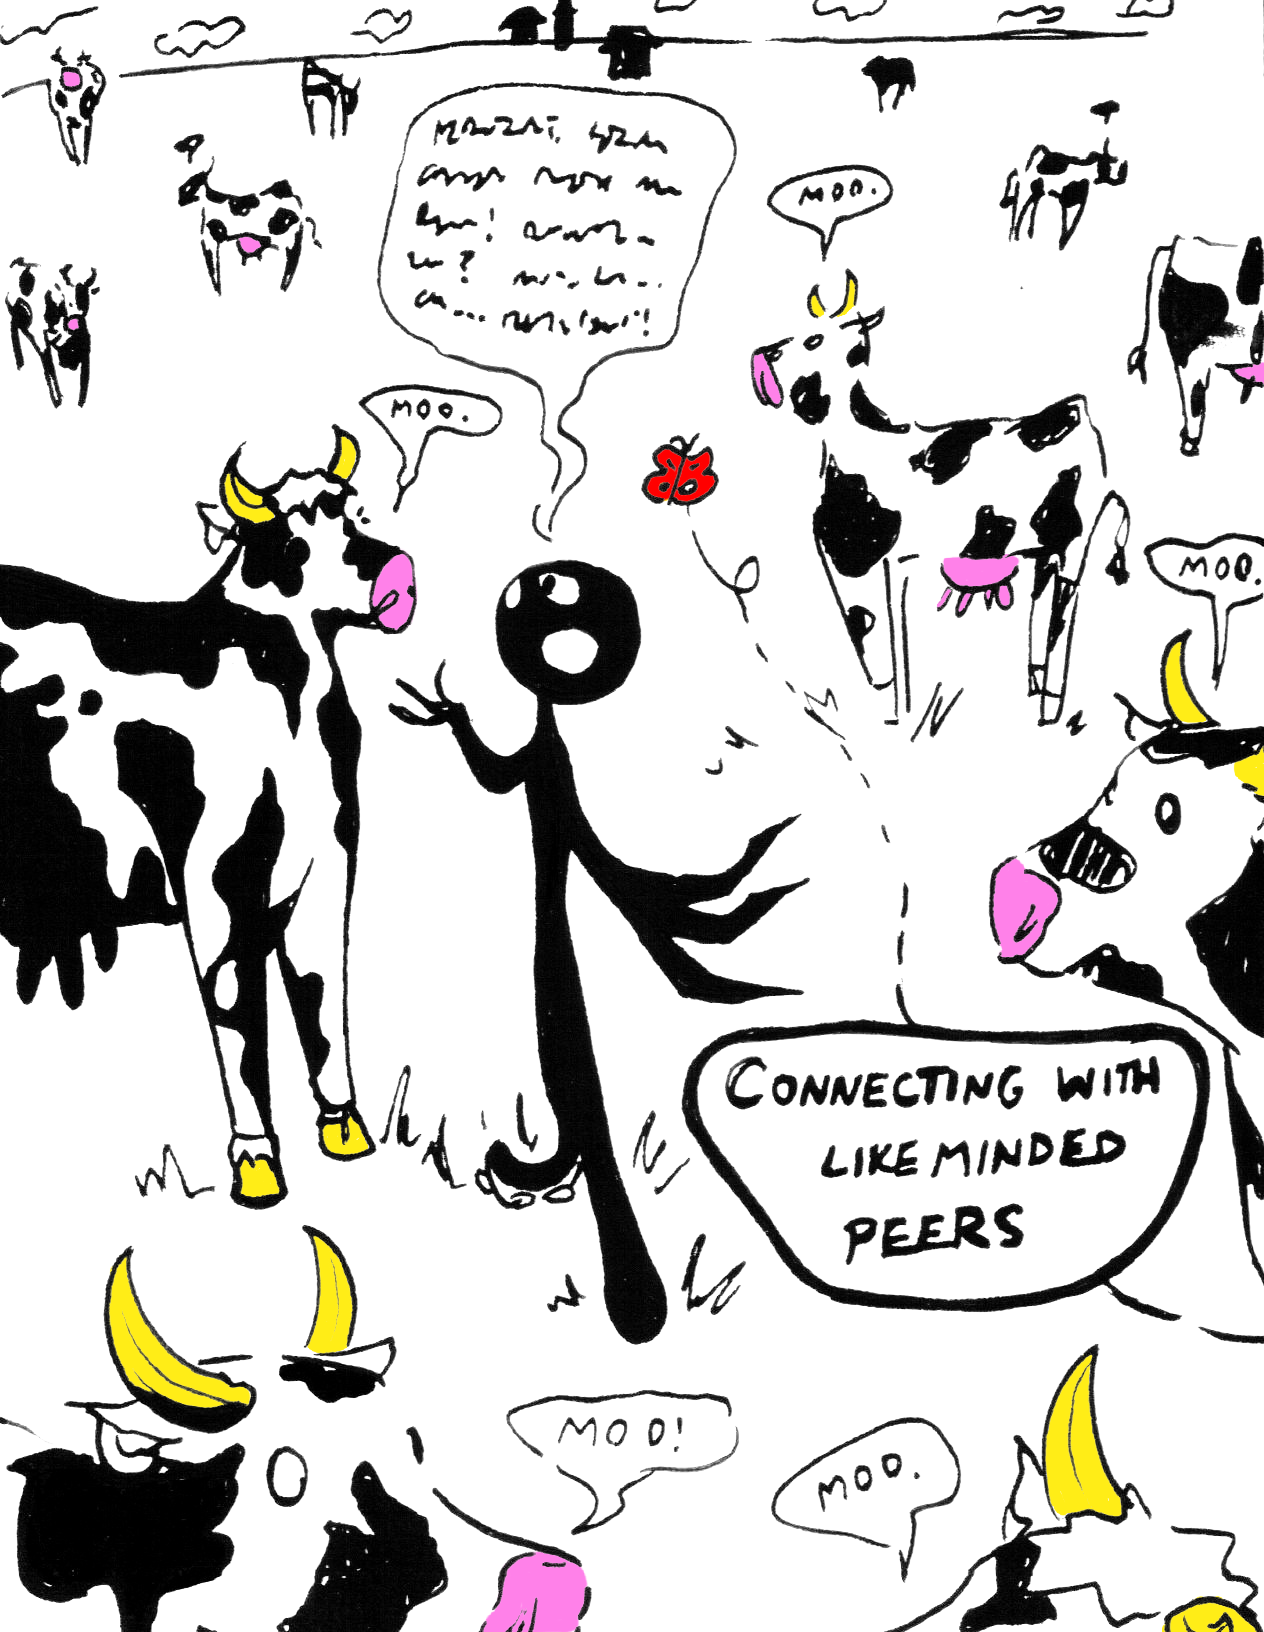 MOO.
MOO.
MOO.
CONNECTING WITH
LIKE MINDED
PEERS
MOO!
MOO.